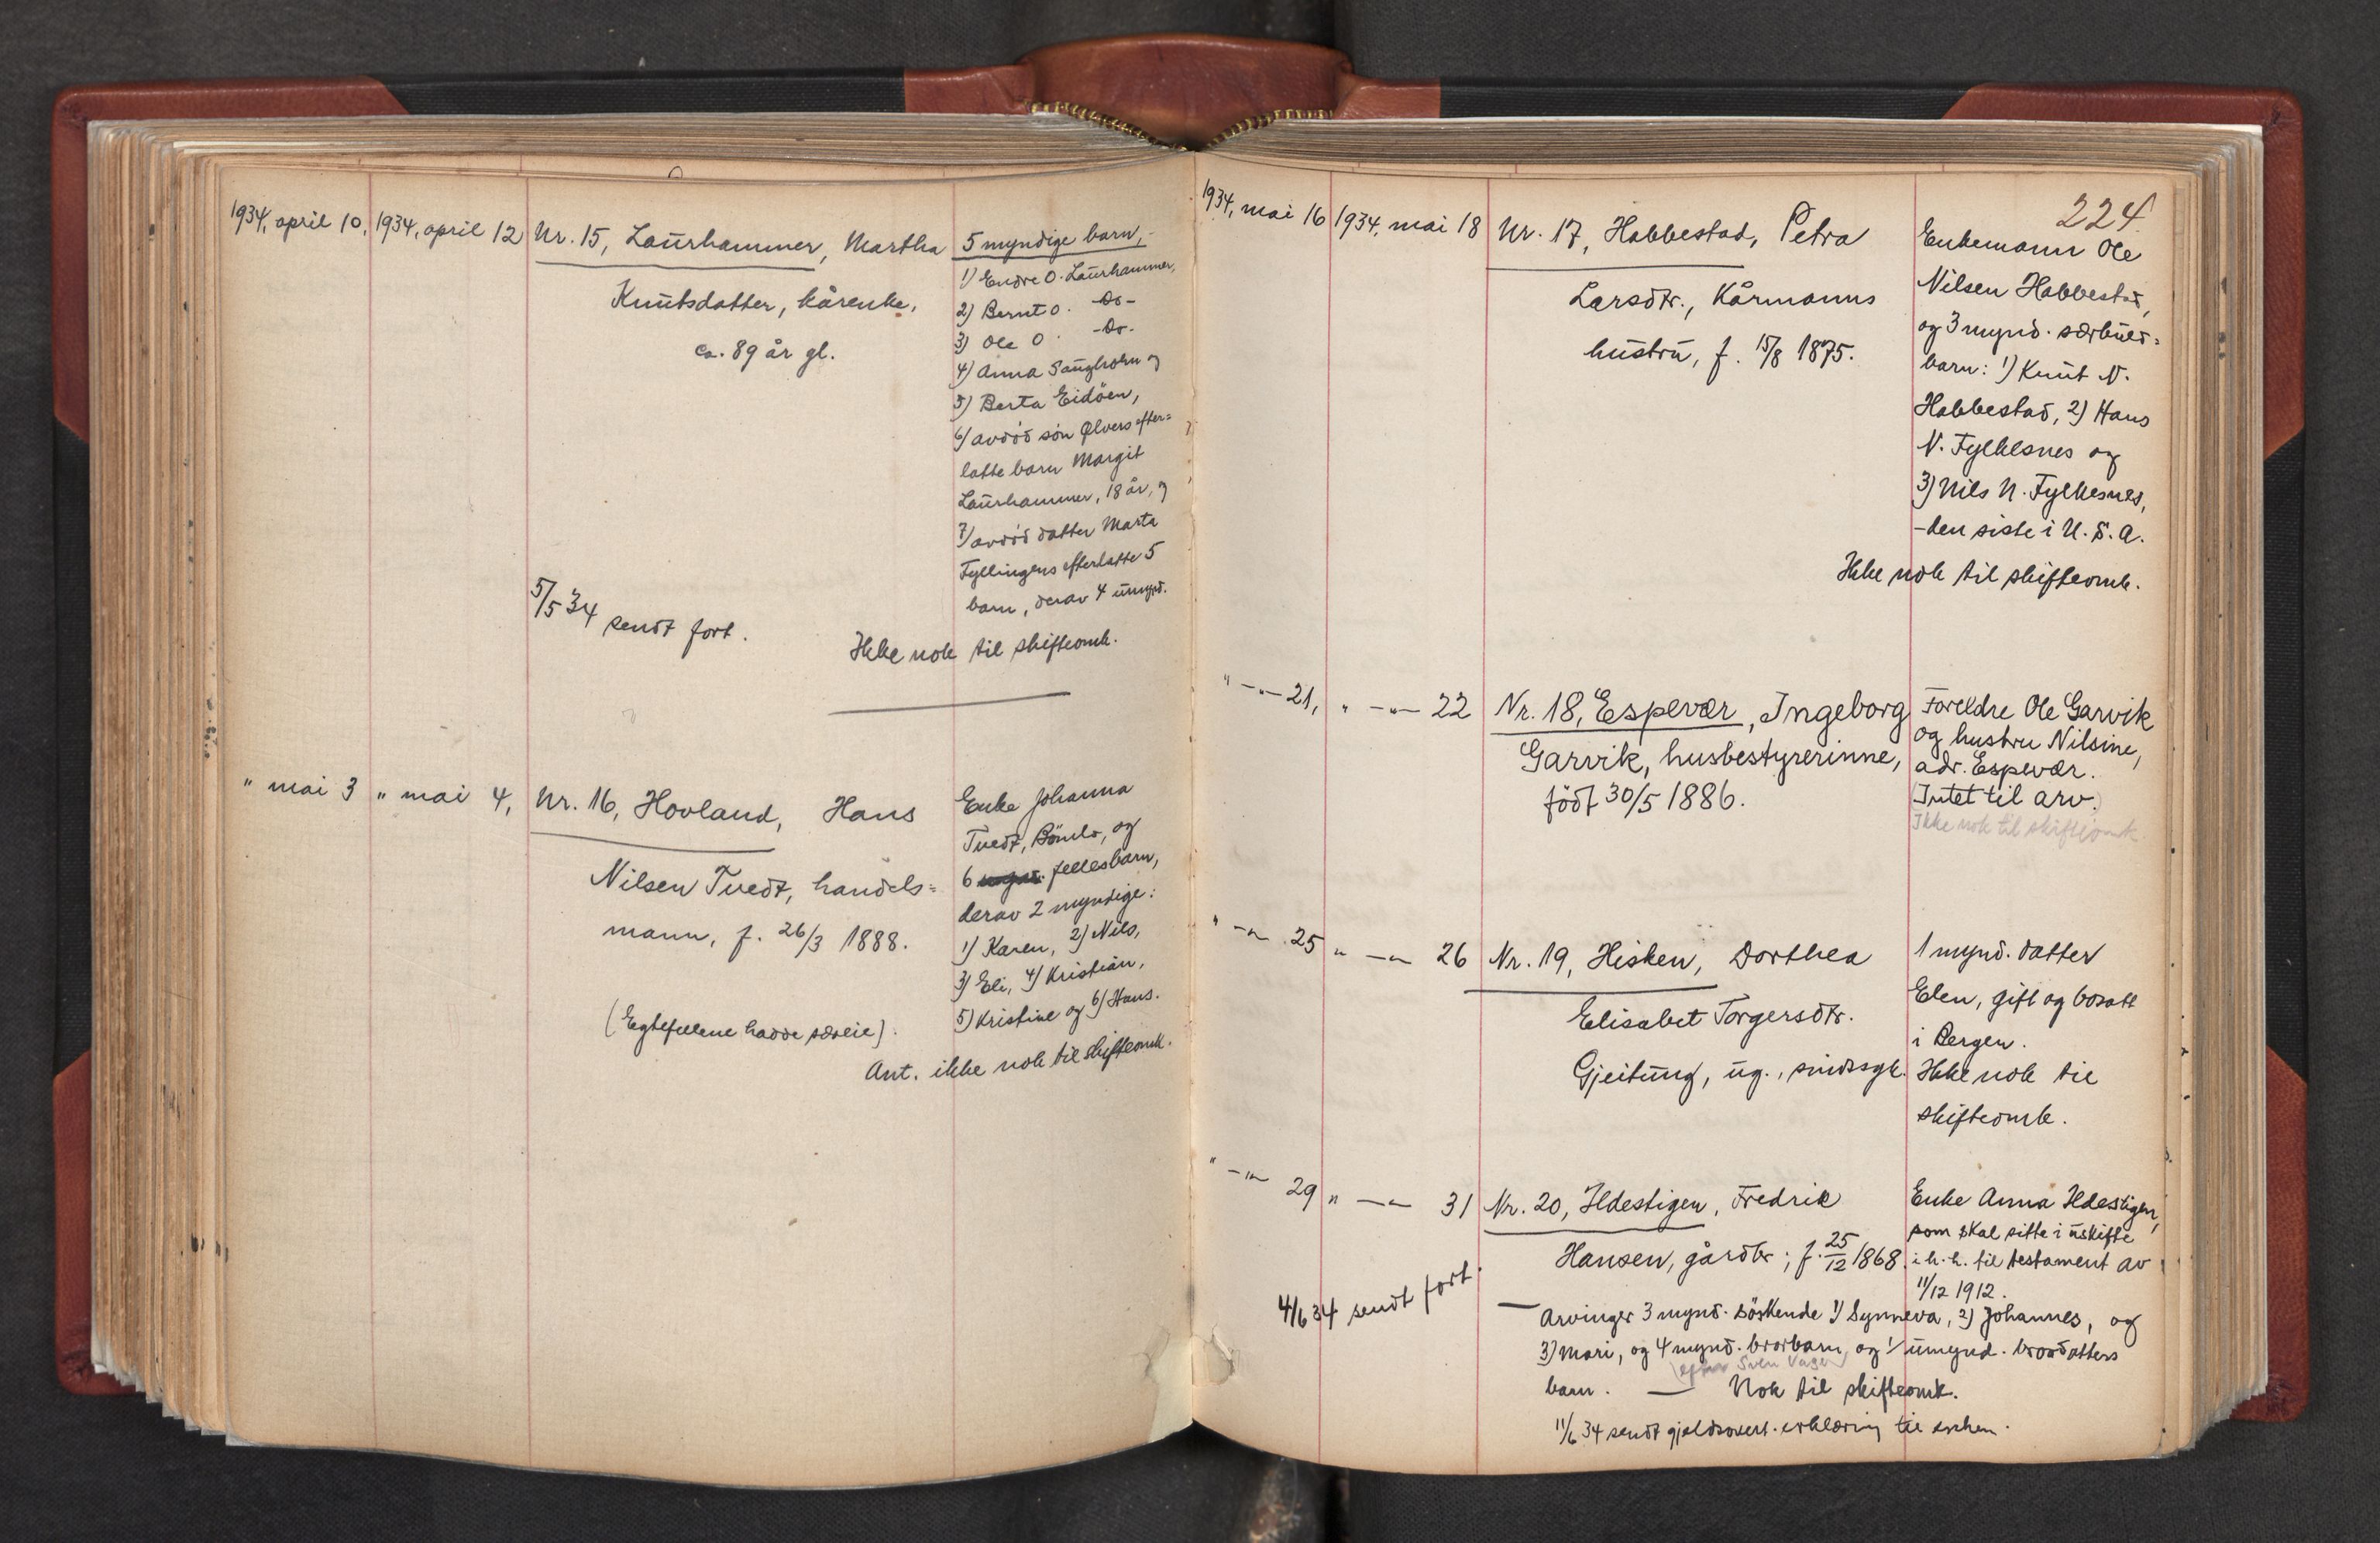 1934, april 10, 1934, april 12 Nr. 15, Laurhammer, Martha
Knutsdatter, kårenke,
ca. 89 år gl.
5 myndige barn,-
1) Endre O. Laurhammer,
2) Bernt O. -Do-
3) Ole O. -Do-
4) Anna Saughohn og
5) Berta Eidöen,
6) avdöd sön Ølvers efter=
latte barn Margit
Laurhammer, 18 år, og
7) avdöd datter Marta
Fyllingens efterlatte 5
barn, derav 4 umynd.
5/5 34 sendt fort.
Ikke nok til skifteomk.
" mai 3 " mai 4, Nr. 16, Hovland, Hans
Nilsen Tvedt, handels=
mann, f. 26/3 1888.
(Egtefellene hadde særeie).
Enke Johanna
Tvedt, Bömlo, og
6 fellesbarn,
derav 2 myndige:
1) Karen, 2) Nils,
3) Eli, 4) Kristian,
5) Kristine og 6) Hans.
Ant. ikke nok til skifteomk.
224.
1934, mai 16 1934, mai 18 Nr. 17, Habbestad, Petra
Larsdtr., Kårmanns
hustru, f. 15/8 1875.
Enkemann Ole
Nilsen Habbestad,
og 3 mynd. særkuld=
barn: 1) Knut N.
Habbestad, 2) Hans
N. Fylkesnes og
3) Nils N. Fylkesnes,
-den siste i U.S.A.
Ikke nok til skifteomk.
" -"- 21, " -"- 22 Nr. 18, Espevær, Ingeborg
Garvik, husbestyrerinne,
födt 30/5 1886.
Foreldre Ole Garvik
og hustru Nilsine,
adr. Espevær.
(Intet til arv.)
Ikke nok til skifteomk.
" -"- 25 " -"- 26 Nr. 19, Hisken, Dorthea
Elisabet Torgersdtr.
Gjeitung, ug., sindssyk.
1 mynd. datter
Elen, gift og bosatt
i Bergen.
Ikke nok til
skifteomk.
" -"- 29 " -"- 31 Nr. 20, Ildestigen, Fredrik
Hansen, gårdbr; f. 25/12 1868.
Enke Anna Ildestigen,
som skal sitte i uskifte
i h. h. til testament av
11/12 1912.
4/6 34 sendt fort.
— Arvinger 3 mynd. söskende 1) Synneva, 2) Johannes, og
3) Mari, og 4 mynd. brorbarn og 1 umynd. brordatters
(efter Sven Vage)
barn. — Nok til skifteomk.
11/6 34 sendt gjeldsovert. erklæring til enken.